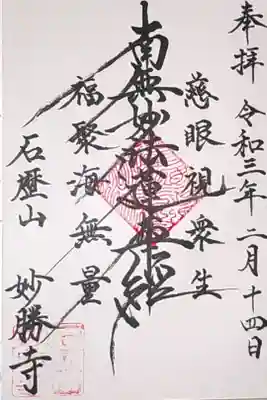 奉拝 令和三年二月十四日
慈眼視衆生
南無妙法蓮華経
福聚海無量
石暦山 妙勝寺